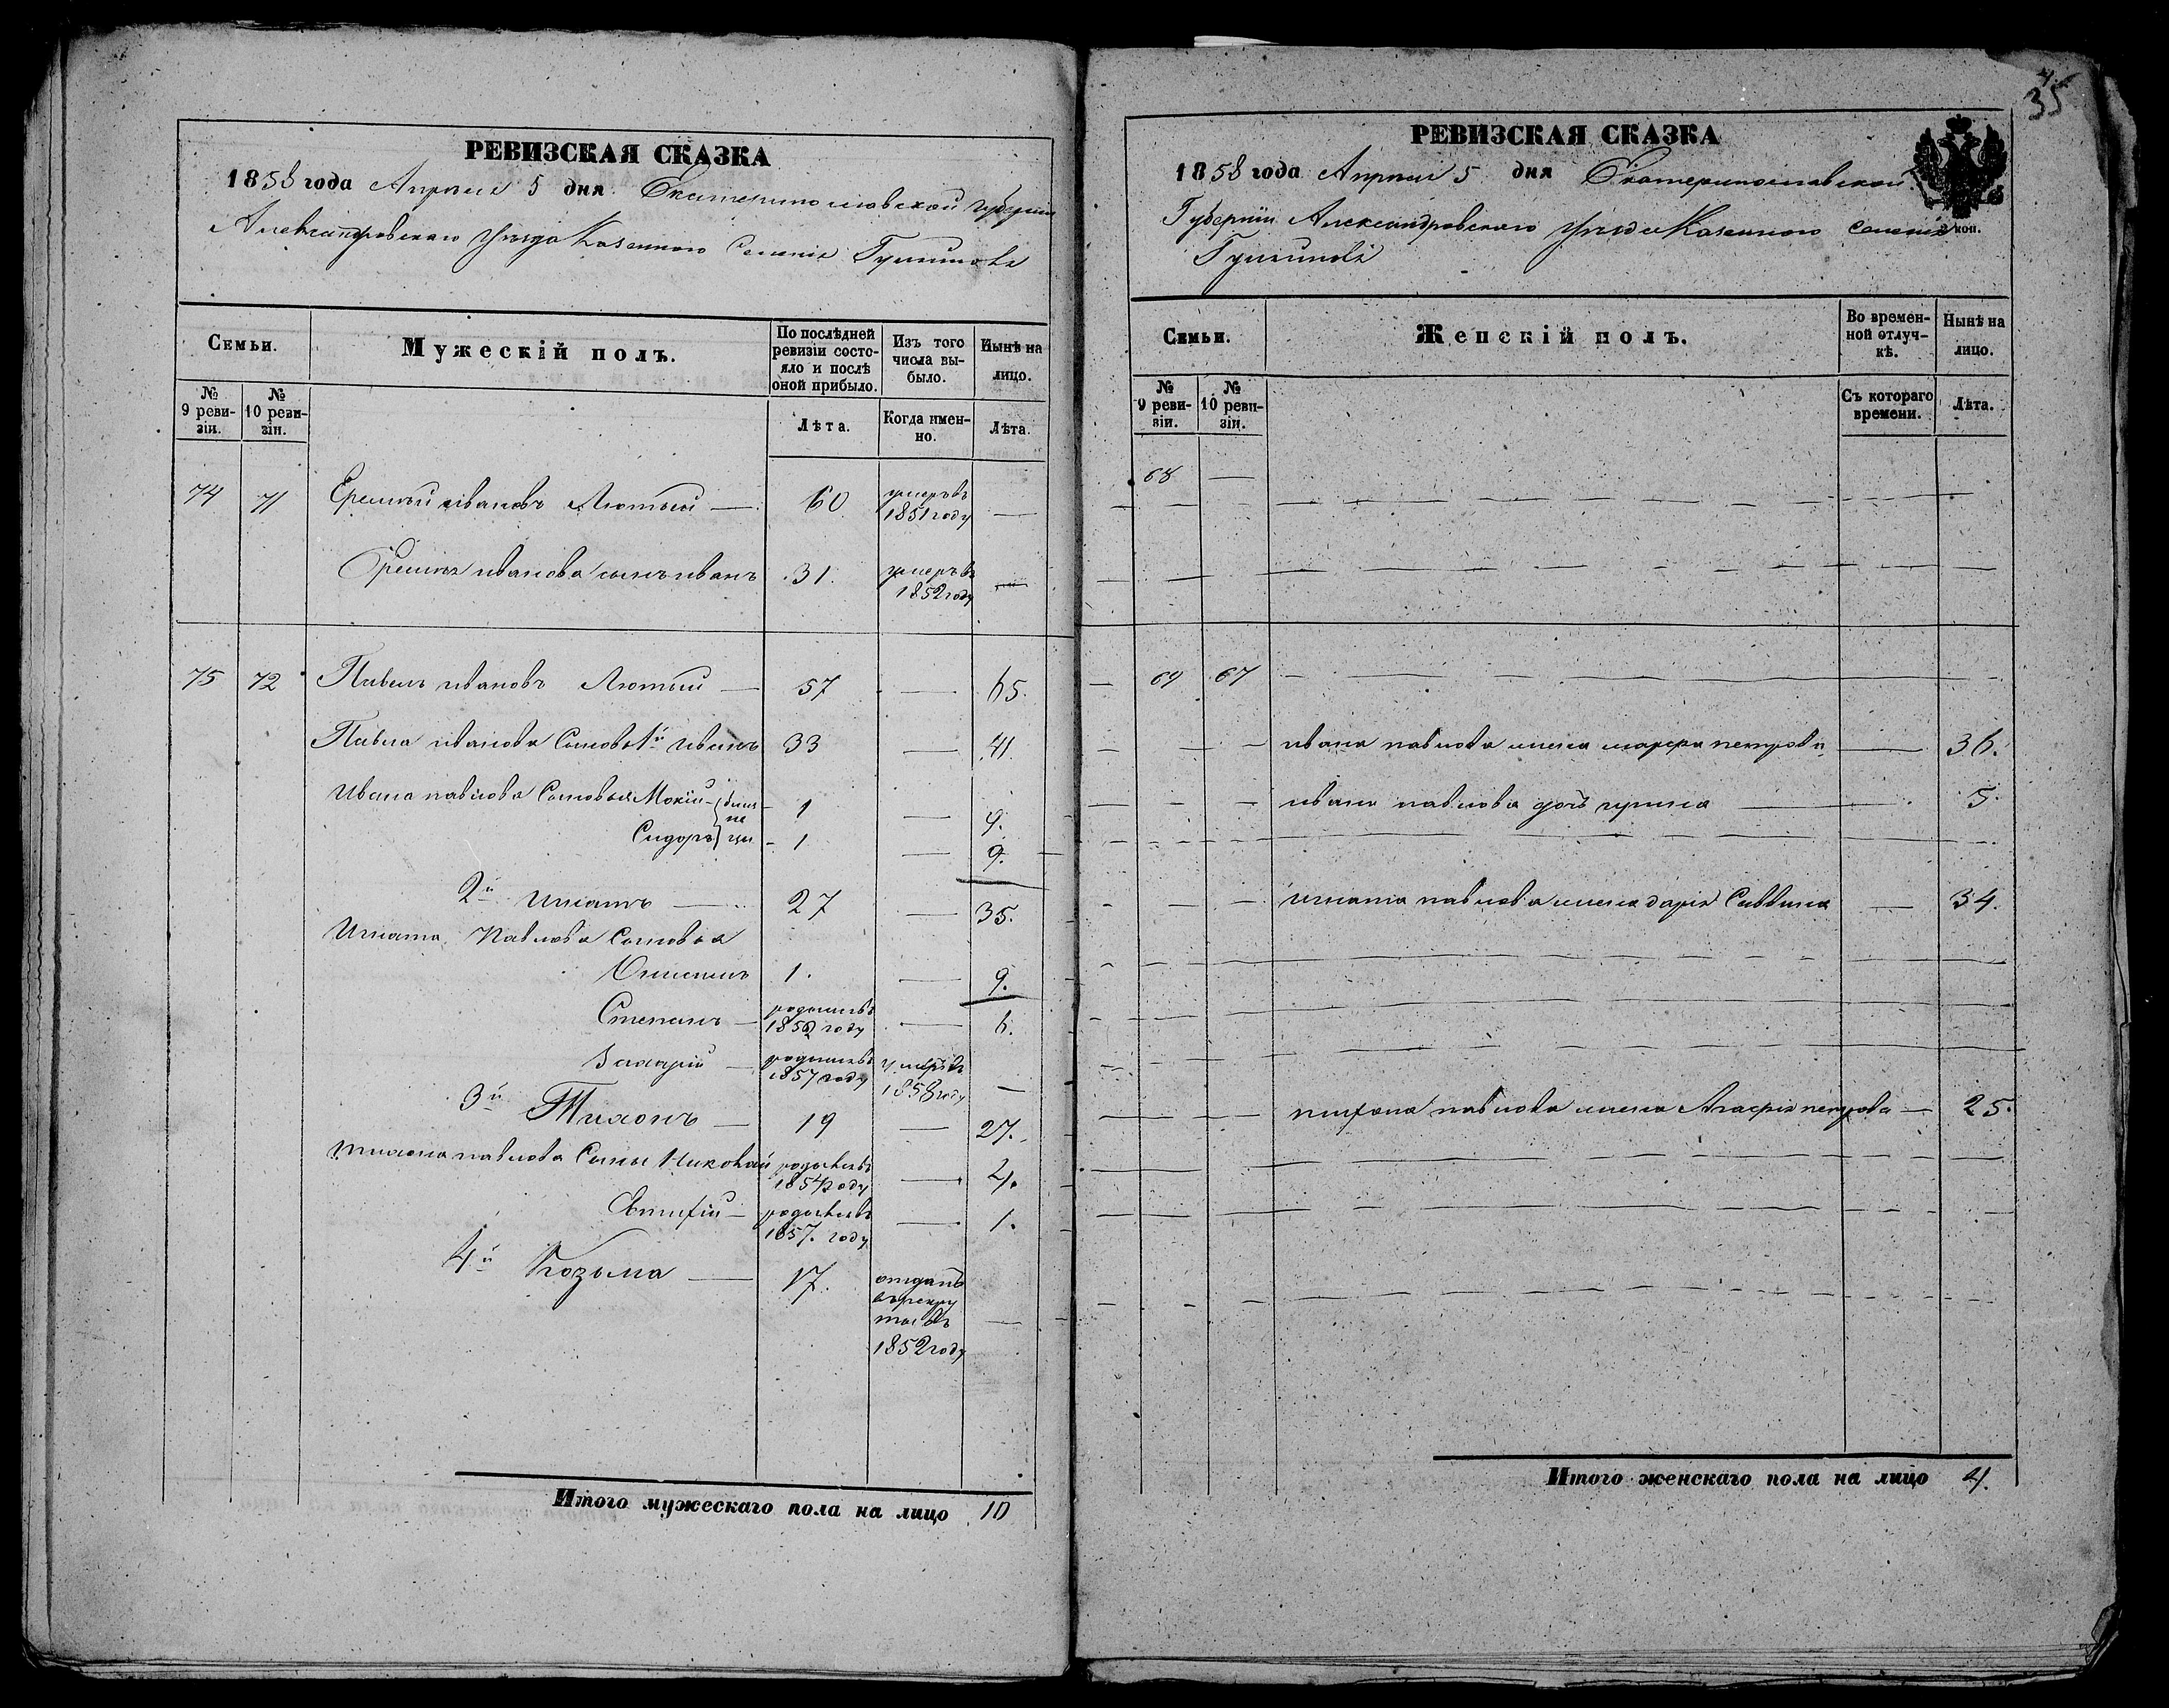 РЕВИЗСКАЯ СКАЗКА
1858 года Апреля 5 дня Екатеринославской Губернии
Александровскаго Уѣзда Казеннаго Селенія
Семьи.
Мужескій полъ.
По послѣдней ревизіи состояло и послѣ оной прибыло.
Изъ того числа выбыло.
Нынѣ на лицо.
№ 9 ревизіи.
№ 10 ревизіи.
Лѣта.
Когда именно.
Лѣта.
74 71 Еремѣй ивановъ Лютый — 60 умеръ въ 1851 году —
Еремѣя иванова сынъ иванъ 31. умеръ въ 1852 году —
75 72 Павелъ ивановъ Лютый — 57 — 65.
Павла иванова Сыновья 1й иванъ 33 — 41.
Ивана павлова Сыновья Мокій — близне — 1 — 9.
Сидоръ цы - 1 — 9.
2й игнатъ — 27 — 35.
Игната Павлова Сыновья
1. — 9.
Степанъ — родился въ 1852 году — 6.
Захарій — родился въ 1857 году умеръ въ 1858 году —
3й Тихонъ — 19 — 27.
тихона павлова Сыны Николай родился въ 1854 году — 4.
Евтифій — родился въ 1857. году — 1.
4й Козьма — 17. отданъ въ рекруты въ 1852 году —
Итого мужескаго пола на лицо 10
35
РЕВИЗСКАЯ СКАЗКА
1858 года Апреля 5 дня Екатеринославской
Губерніи Александровскаго Уѣзда Казеннаго селенія
коп.
Семьи.
Женскій полъ.
Во временной отлучкѣ.
Нынѣ на лицо.
№ 9 ревизіи.
№ 10 ревизіи.
Съ котораго времени.
Лѣта.
68 —
69 67
ивана павлова жена марфа петрова — 36.
ивана павлова дочь — 5.
игната павлова жена дарія Саввина — 34.
тихона павлова жена Агафія петрова — 25.
Итого женскаго пола на лицо 4.